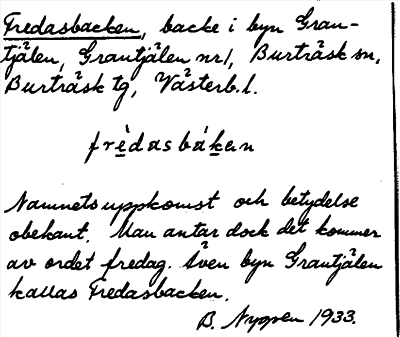 Fredasbacken, backe i byn Gran-
tjålen, Grantjålen nr 1, Burträsk sn,
Burträsk tg, Västerb. l.
frèdasbákan
Namnets uppkomst och betydelse
obekant. Man antar dock det kommer
av ordet fredag. Även byn Grantjålen
kallas Fredasbacken.
B. Nygren 1933.